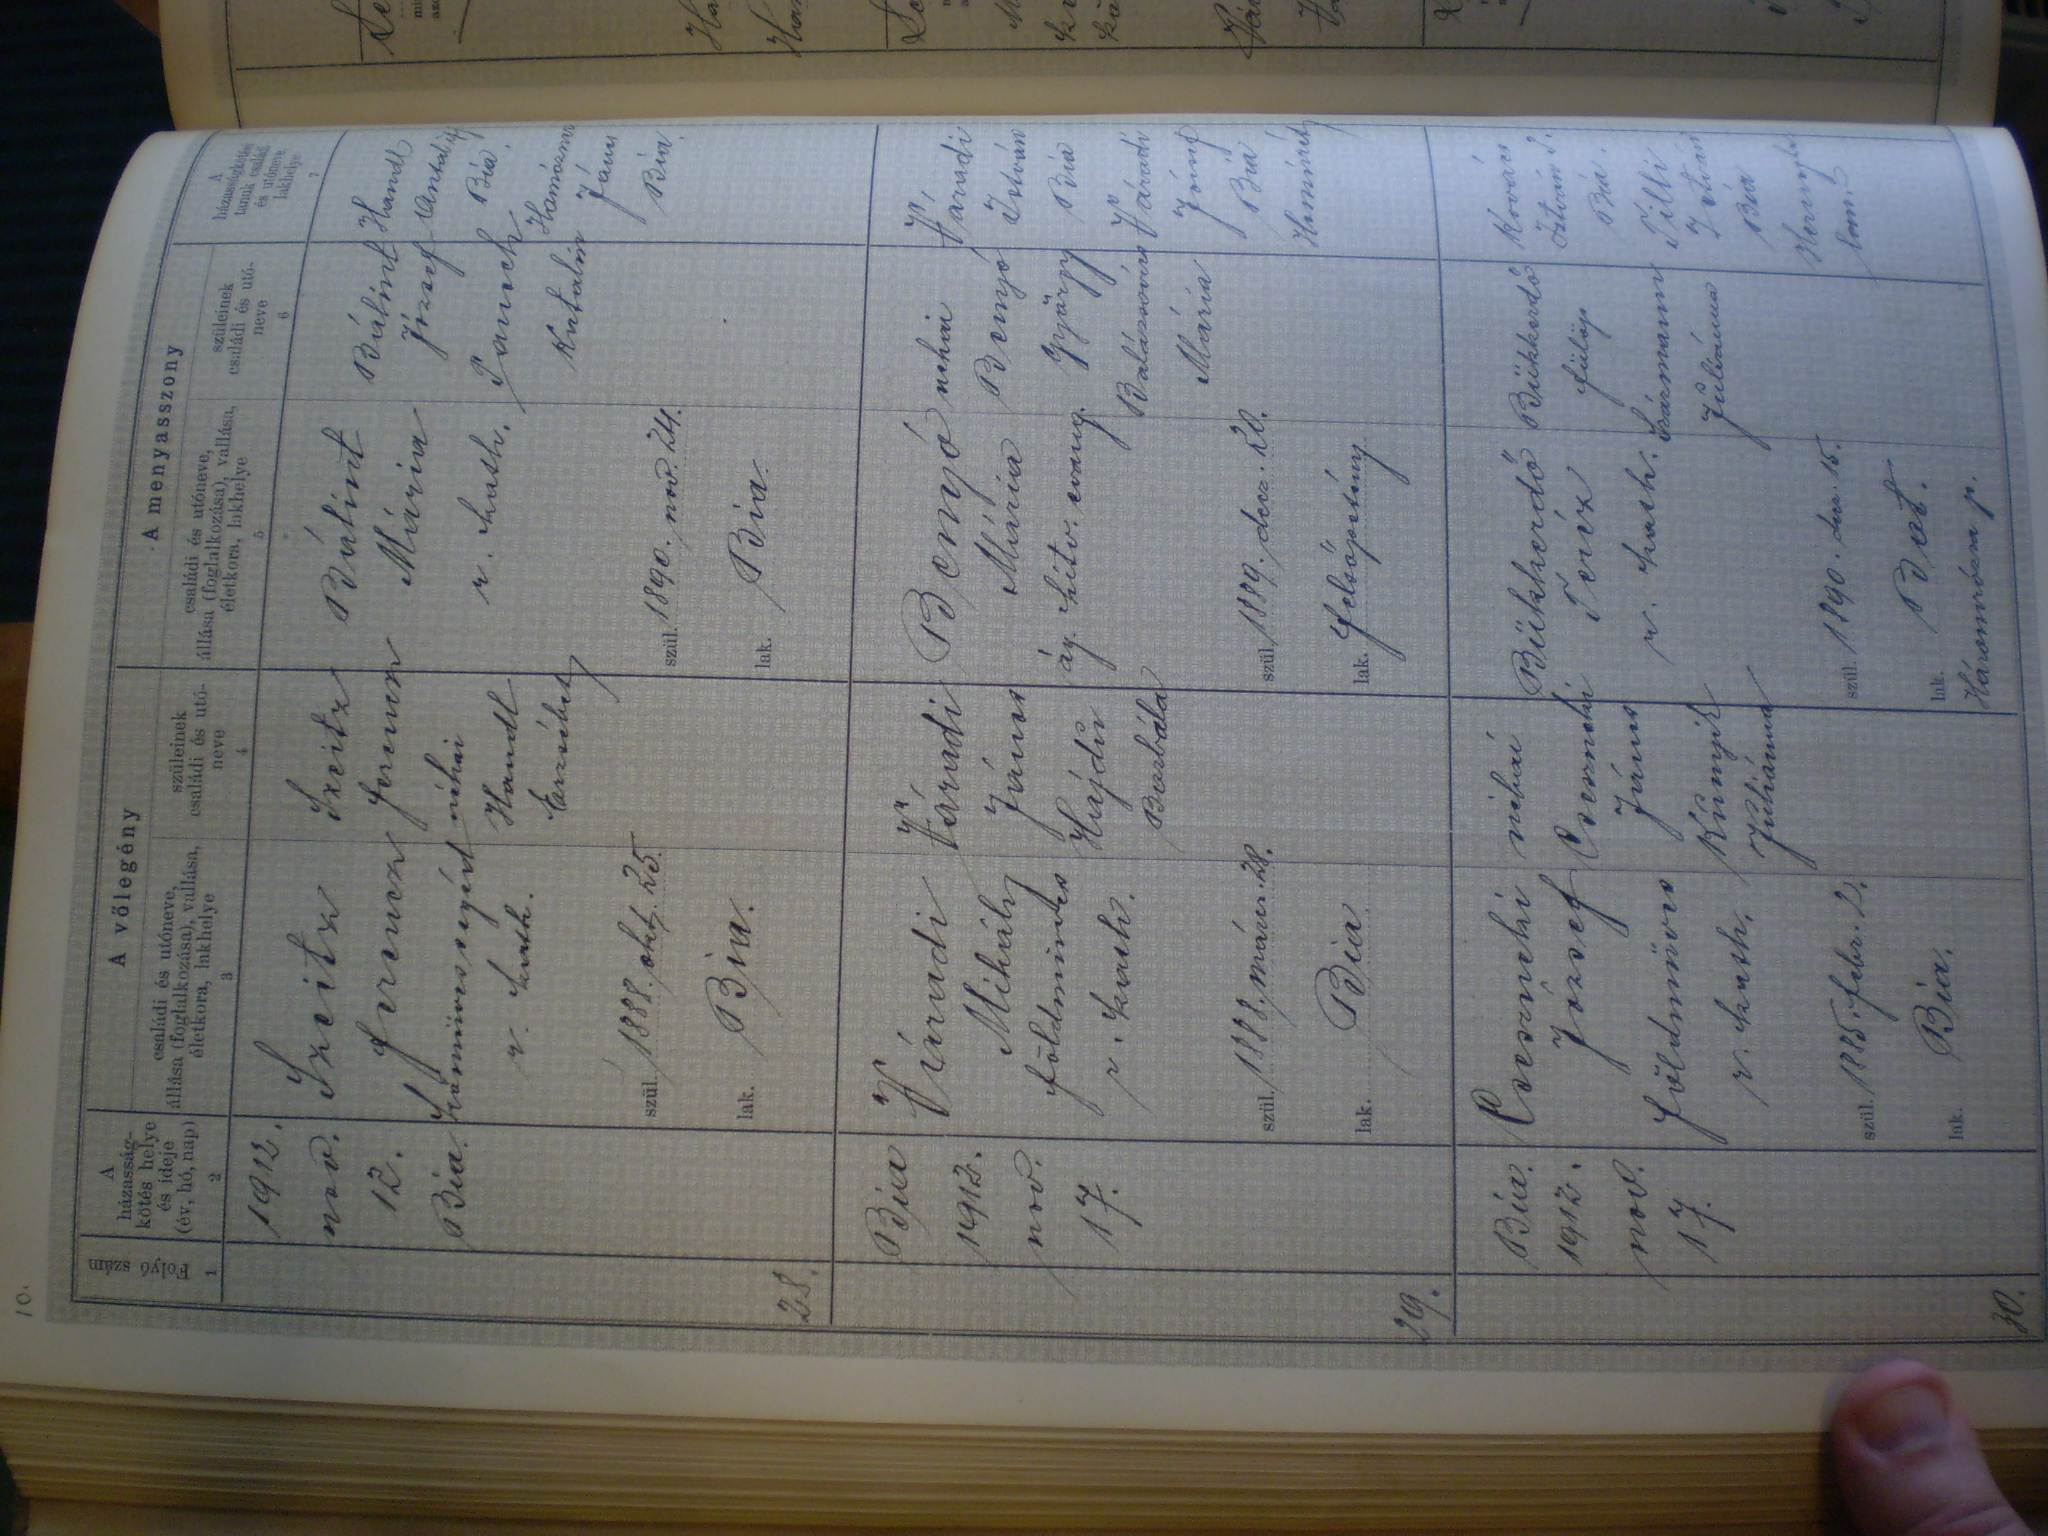 10.
Folyó szám
1
A
házasság-
kötés helye
és ideje
(év, hó, nap)
2
A vőlegény
családi és utóneve,
állása (foglalkozása), vallása,
életkora, lakhelye
3
szüleinek
családi és utó-
neve
4
A menyasszony
családi és utóneve,
állása (foglalkozása), vallása,
életkora, lakhelye
5
szüleinek
családi és utó-
neve
6
A
házasságkötési
tanuk családi
és utóneve
lakhelye
7
28.
1912.
nov.
12.
Bia.
Szeitz
Ferencz
kőmüvessegéd
r. kath.
szül. 1888. okt. 25.
lak. Bia.
Szeitz
Ferencz
néhai
Handl
Erzsébet
Bálint
Mária
r. kath.
szül. 1890. nov. 24.
lak. Bia.
Bálint
József
Katalin
Handl
Antal
Bia.
János
Bia.
29.
Bia
1912.
nov.
17.
Váradi
Mihály
földmives
r. kath.
szül. 1888. márc. 28.
lak. Bia
Váradi
János
Hajdu
Borbála
Benyó
Mária
ág. hitv. evang.
szül. 1889. decz. 20.
lak. Felsőpetény
néhai
Benyó
György
Balázsovics
Mária
Váradi
István
Bia
Váradi
József
Bia
30.
Bia.
1912.
nov.
17.
József
földmüves
r. kath.
szül. 1885. febr. 2.
lak. Bia.
néhai
János
Juliánna
Bükkerdő
Teréz
r. kath.
szül. 1890. 15.
lak. Bot.
Háromrózsa p.
Bükkerdő
Fülöp
Juliánna
Kovács
István
Bia.
Tilli
István
Bia